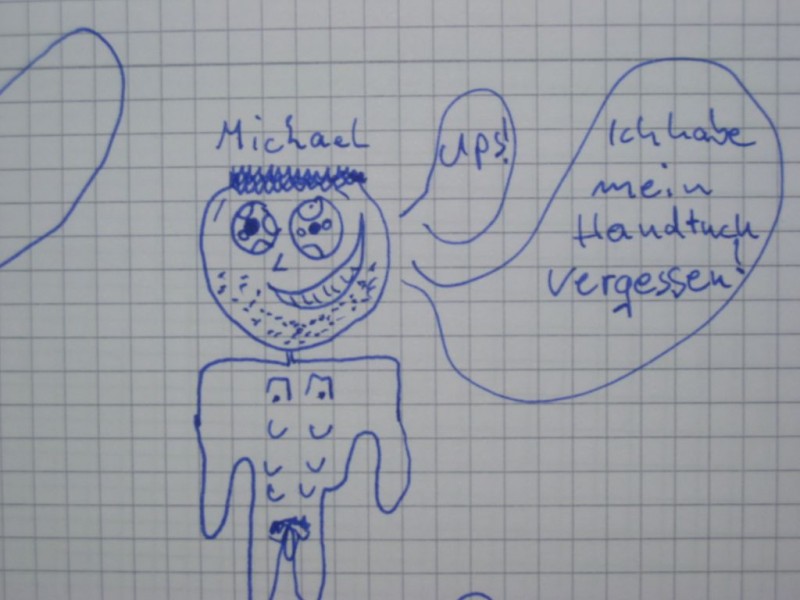 Michael
ups!
Ich habe
mein
Handtuch
vergessen!